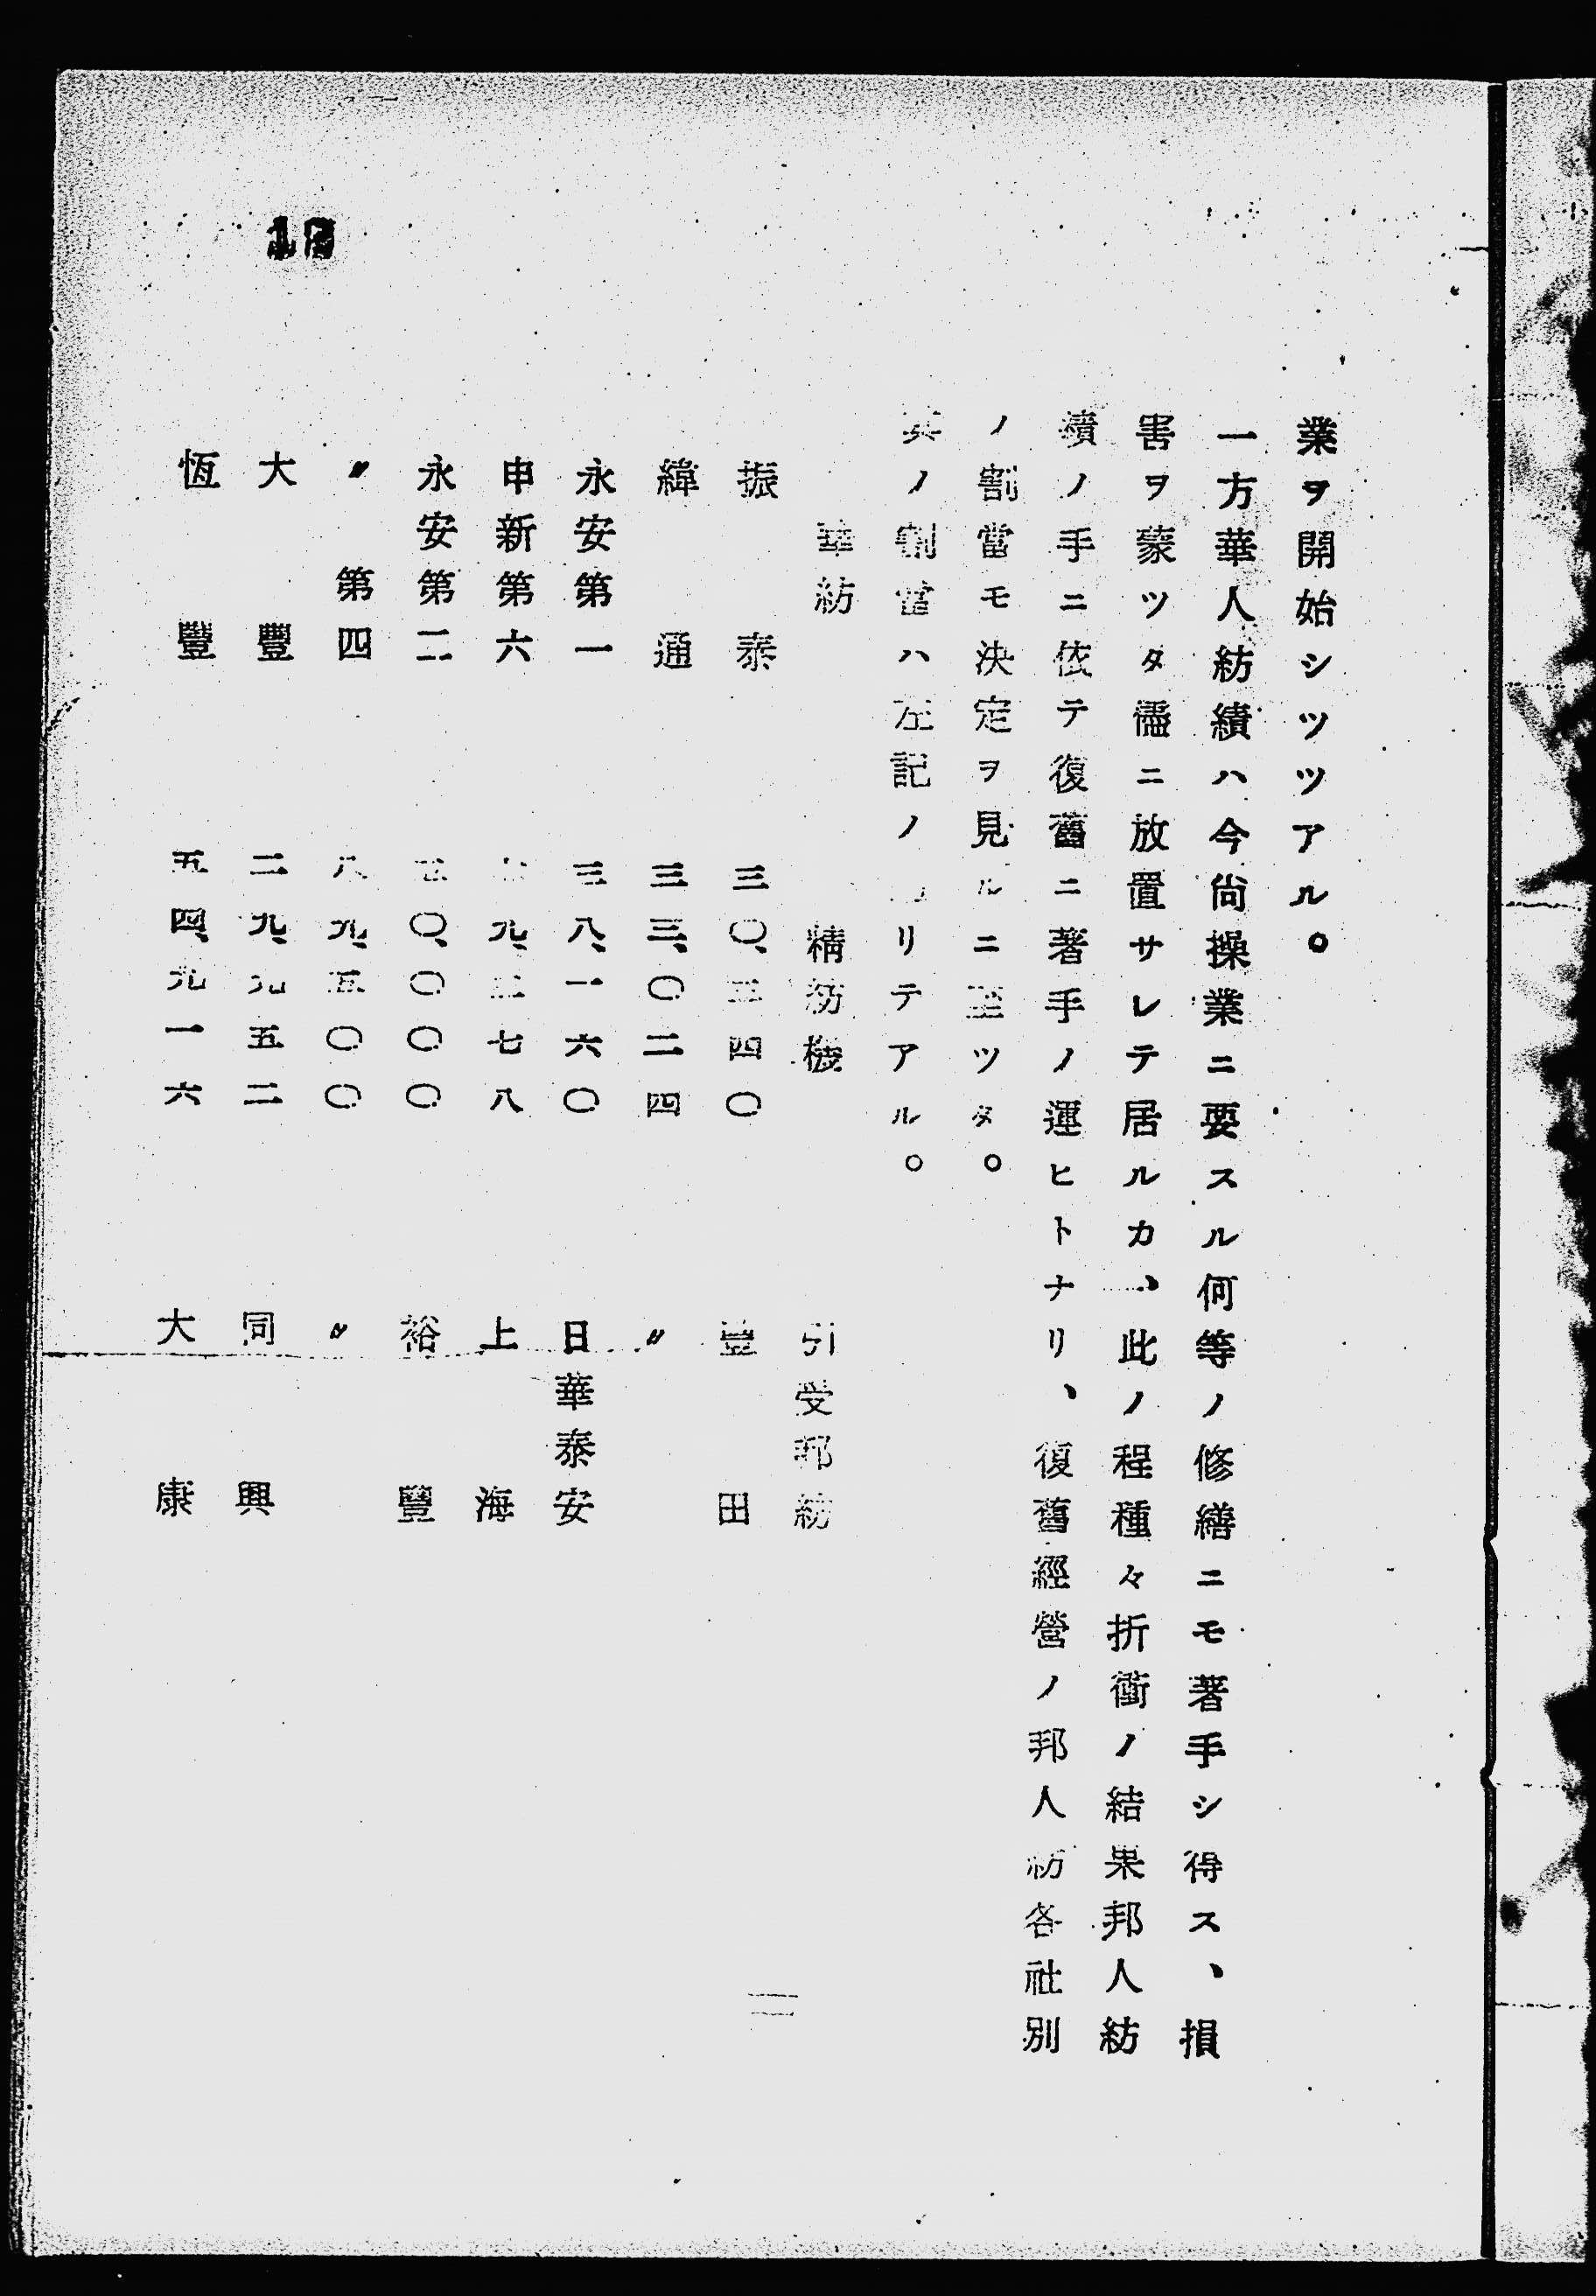 業ヲ開始シツツアル。
一方華人紡績ハ今尙操業ニ要スル何等ノ修繕ニモ著手シ得ス、損
害ヲ蒙ツタ儘ニ放置サレテ居ルカ、此ノ程種々折衝ノ結果邦人紡
績ノ手ニ依テ復舊ニ著手ノ運ヒトナリ、復舊經營ノ邦人紡各社別
ノ割當モ決定ヲ見ルニ至ツタ。
其ノ割當ハ左記ノ リテアル。
華紡 精紡機 引受邦紡
振泰 三〇、三四〇 豐田
緯通 三三、〇二四 〃
永安第一 三八、一六〇 日華泰安
申新第六 九、三七八 上海
永安第二 〇、〇〇〇 裕豐
〃第四 八九、五〇〇 〃
大豐 二九、九五二 同興
恆豐 五四、九一六 大康